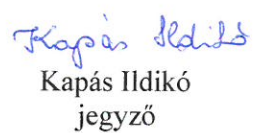 Kapás Ildikó
Kapás Ildikó
jegyző